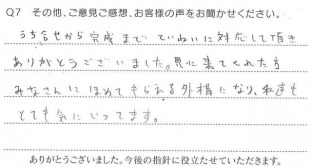 Q7 その他、ご意見ご感想、お客様の声をお聞かせください。
うち合せから完成まで ていねいに対応して頂き
ありがとうございました。見に来てくれた方
みなさんに ほめてもらえる外構になり、私達も
とても気にいってます。
ありがとうございました。今後の指針に役立たせていただきます。